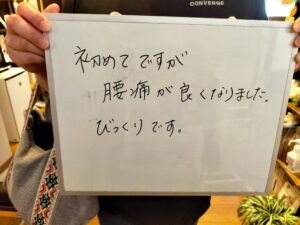 CONVERSE
初めてですが
腰痛が良くなりました。
びっくりです。